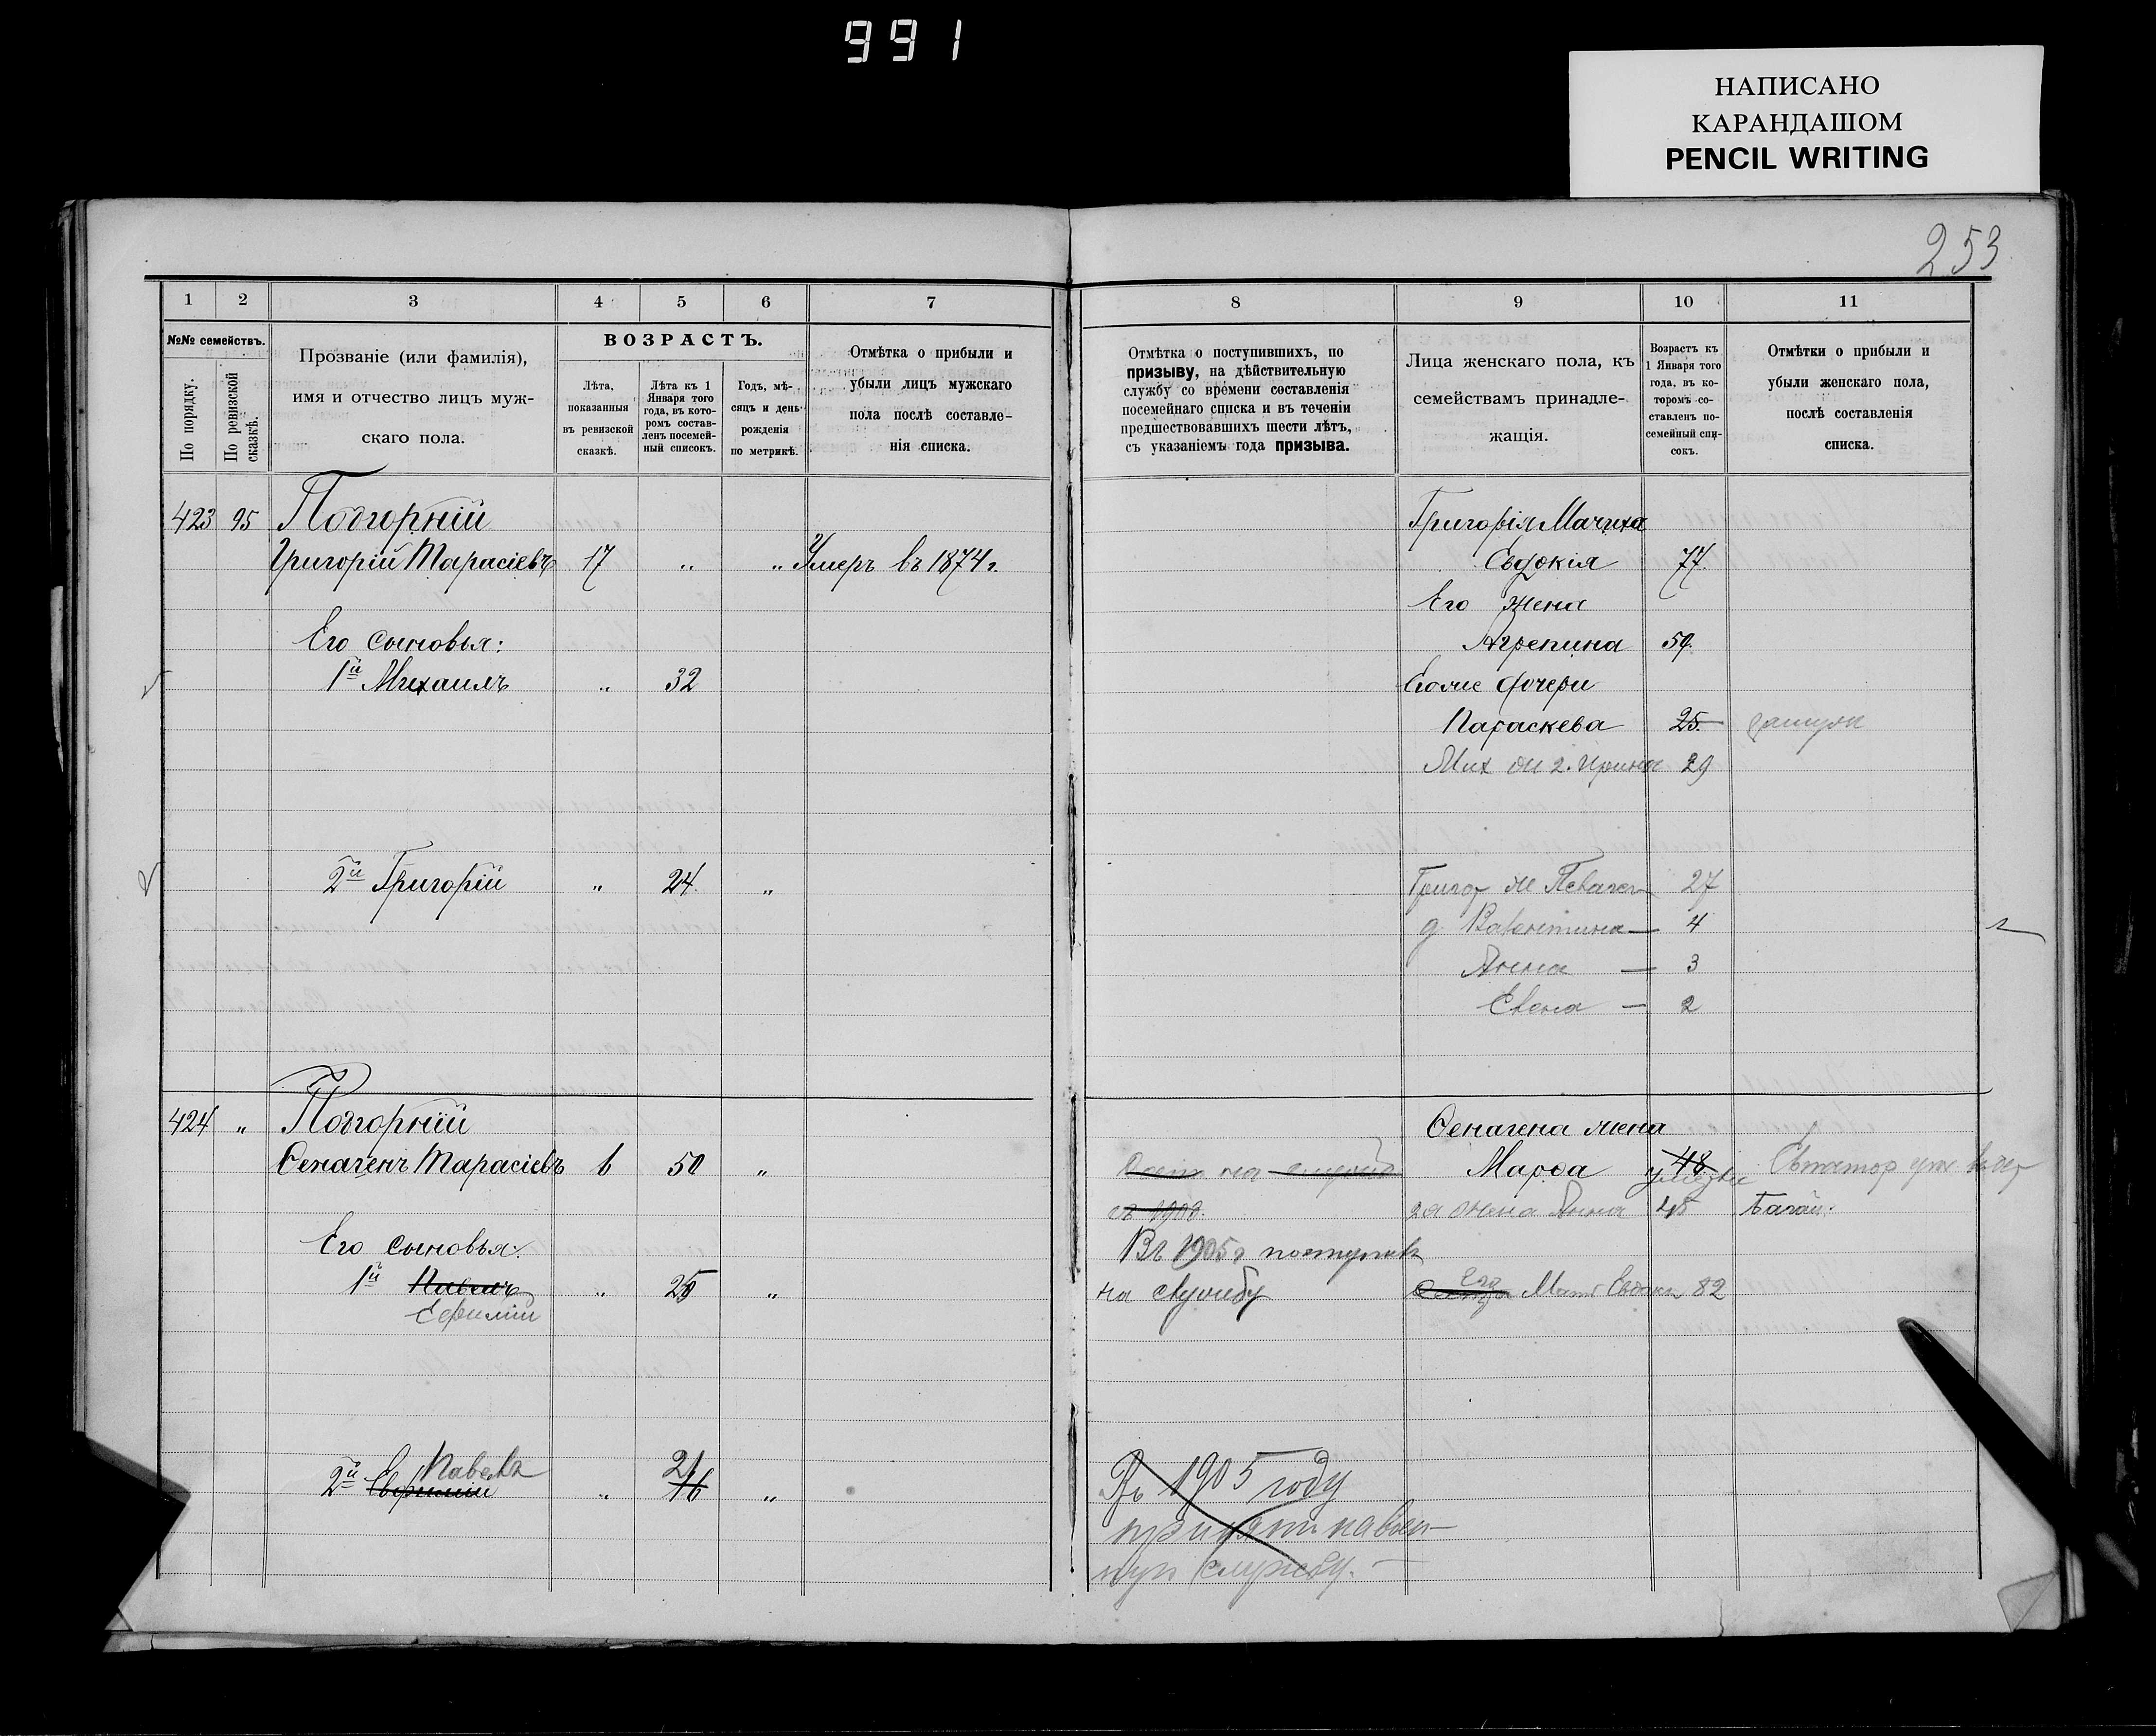 991
НАПИСАНО
КАРАНДАШОМ
PENCIL WRITING
253
1 2 3 4 5 6 7 8 9 10 11
№№ семействъ.
По порядку.
По ревизской сказкѣ.
Прозваніе (или фамилія),
имя и отчество лицъ муж-
скаго пола.
ВОЗРАСТЪ.
Лѣта,
показанныя
въ ревизской
сказкѣ.
Лѣта къ 1
Января того
года, въ кото-
ромъ состав-
ленъ посемей-
ный списокъ.
Годъ, мѣ-
сяцъ и день
рожденія
по метрикѣ.
Отмѣтка о прибыли и
убыли лицъ мужскаго
пола послѣ составле-
нія списка.
Отмѣтка о поступившихъ, по
призыву, на дѣйствительную
службу со времени составленія
посемейнаго списка и въ теченіи
предшествовавшихъ шести лѣтъ,
съ указаніемъ года призыва.
Лица женскаго пола, къ
семействамъ принадле-
жащія.
Возрастъ къ
1 Января того
года, въ ко-
торомъ со-
ставленъ по-
семейный спи-
сокъ.
Отмѣтки о прибыли и
убыли женскаго пола,
послѣ составленія
списка.
423 95 Подгорній Григорія Мачиха
Григорій Тарасіевъ 17 " " Умеръ въ 1874 г. Евдокія 77.
Его жена
Его сыновья: Агрепина 59.
1й Михаилъ " 32 дочери
Параскева 25. замуж
Мих ж 2. Ирина 29
2й Григорій " 24. " Григор ж 27
д Валентина — 4
Анна — 3
Елена — 2
424 " Подгорній жена
Тарасіевъ 6 50 " на Марѳа 48.
2я жена Анна 45
Его сыновья: Въ 1905 г поступилъ
1й Павелъ " 25 " на службу Его Мать 82
Ефимій
Павелъ 21
2й Евфимій " 16 " Въ 1905 году
принятъ на воен-
ную службу. —